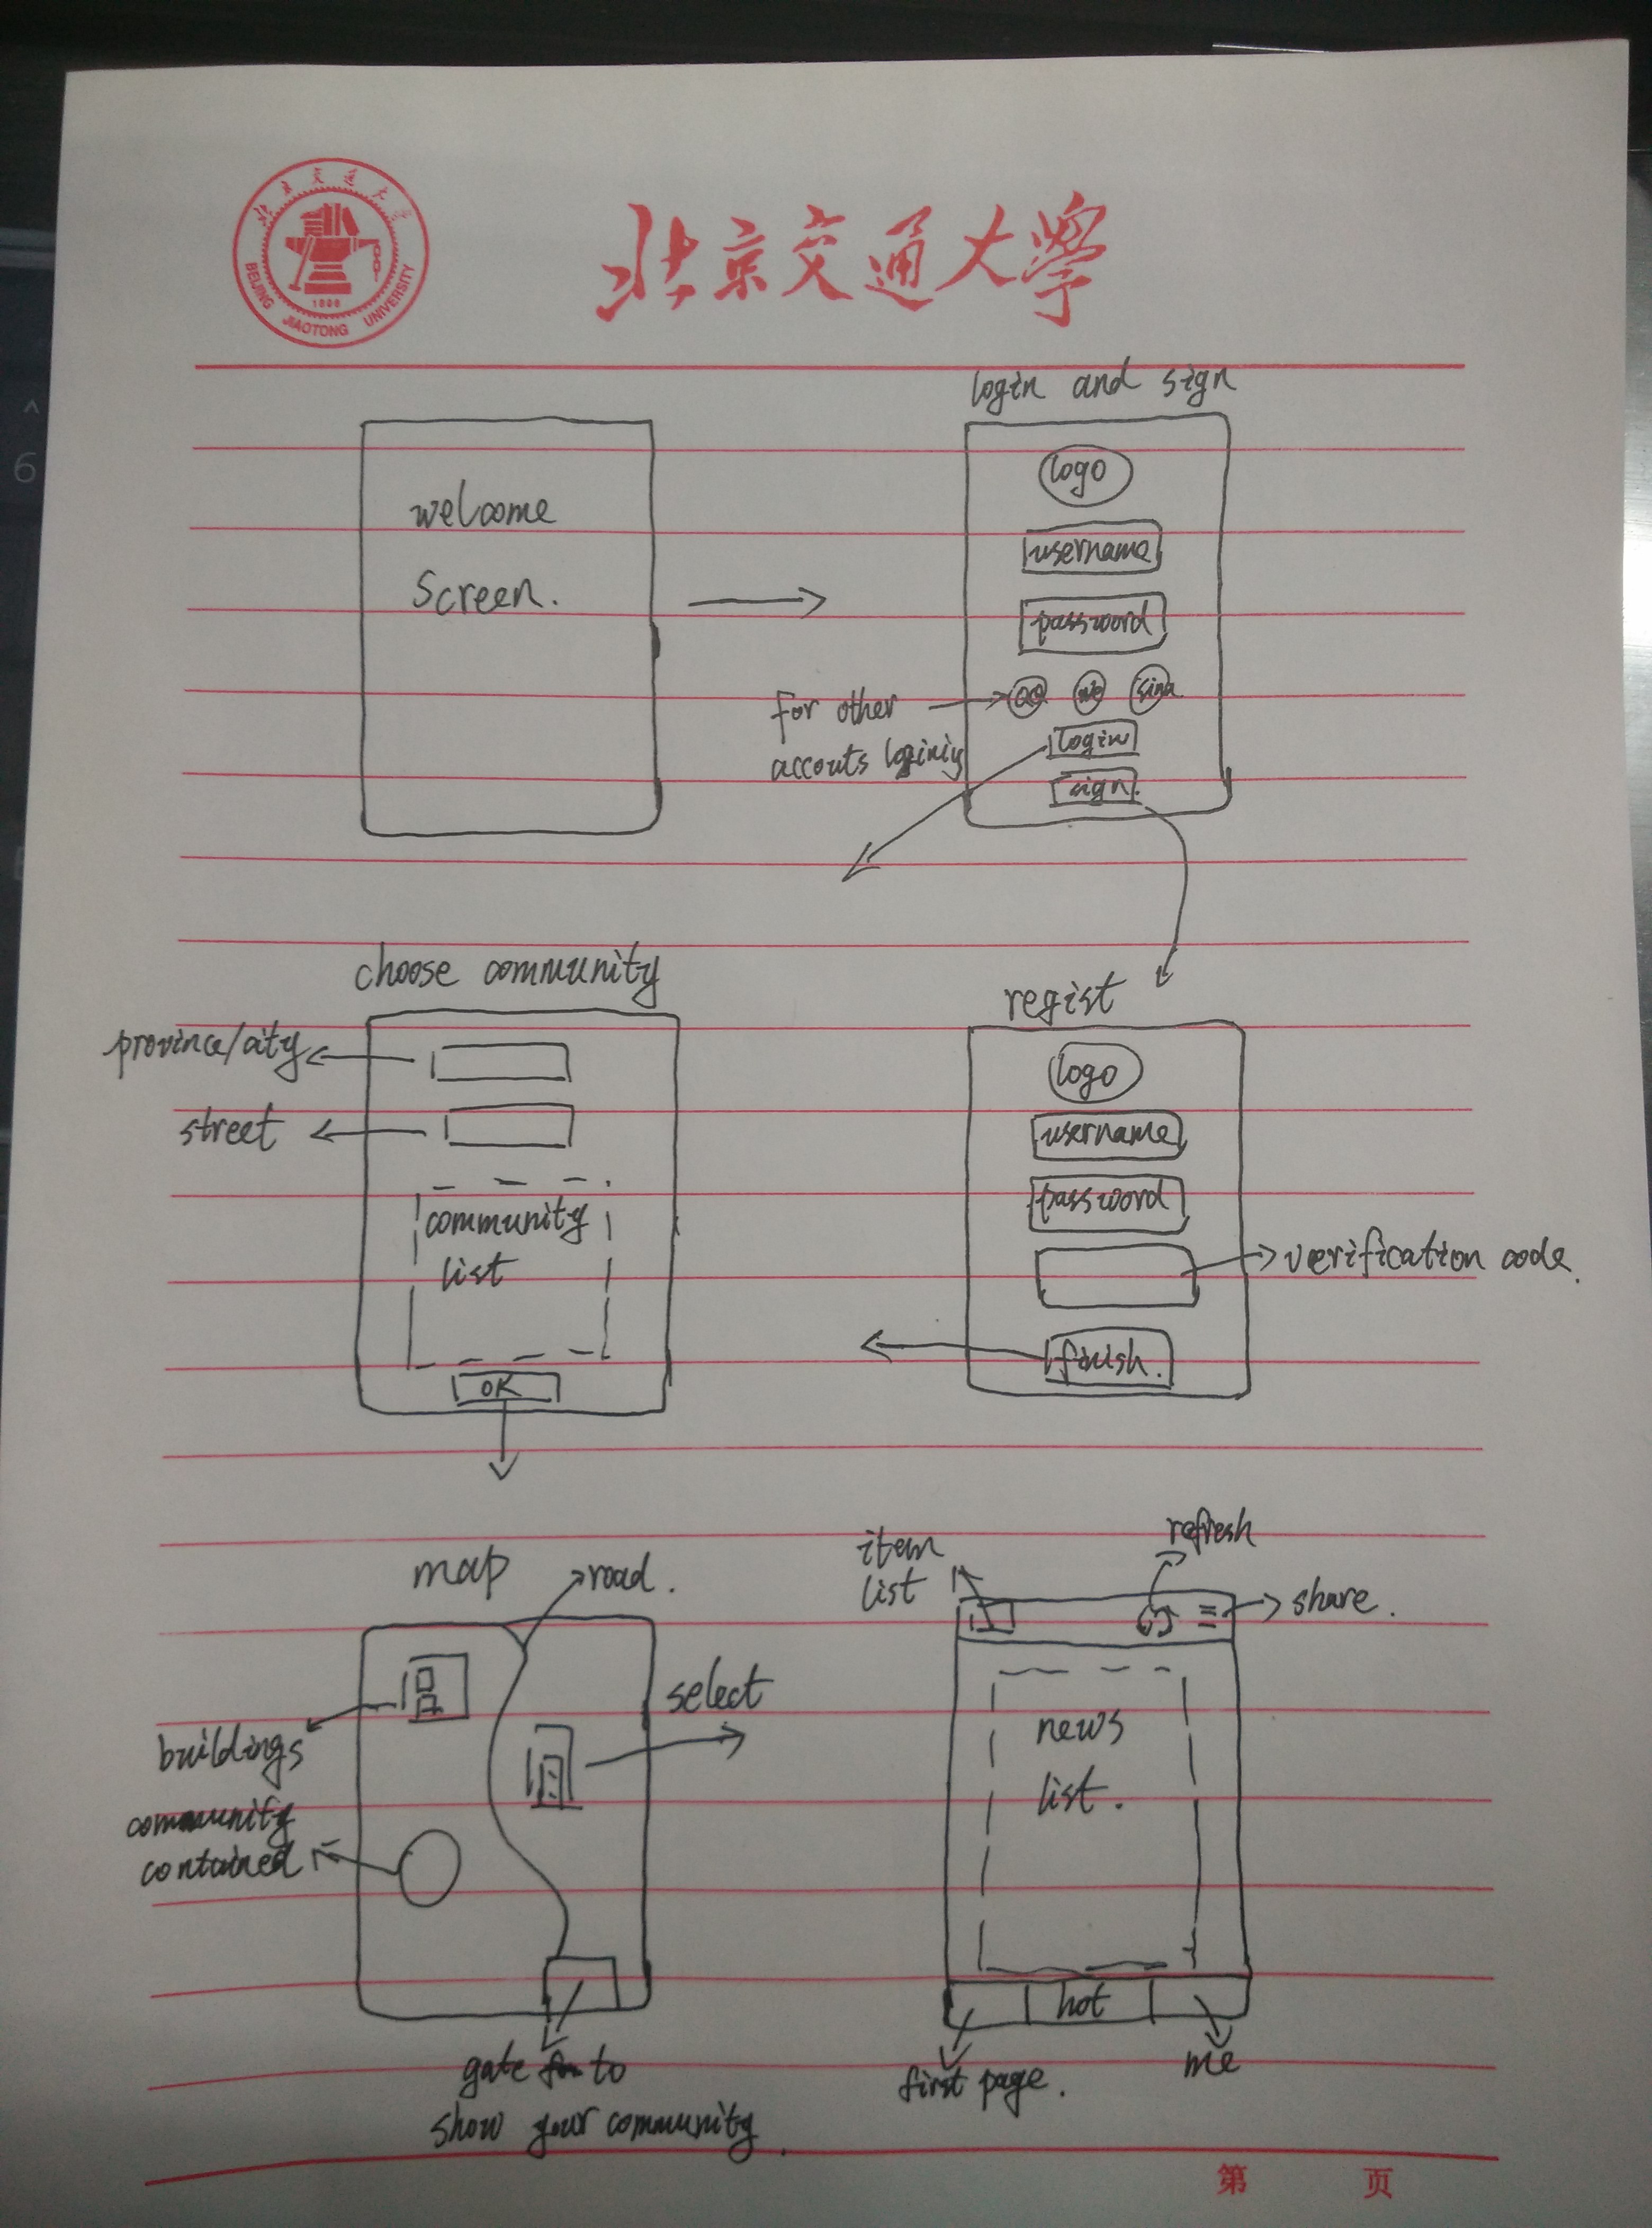 北京交通大学
BEIJING JIAOTONG UNIVERSITY
1896
北京交通大學
login and sign
welcome
Screen.
logo
username
password
QQ
sina
for other
accouts loginiy
login
sign.
choose community
province/city
street
community
list
OK
regist
logo
username
password
verification code.
finish.
map
road.
buildings
select
community
contained
gate to
show your community.
item
list
refresh
share.
news
list.
hot
first page.
me
第 页
6